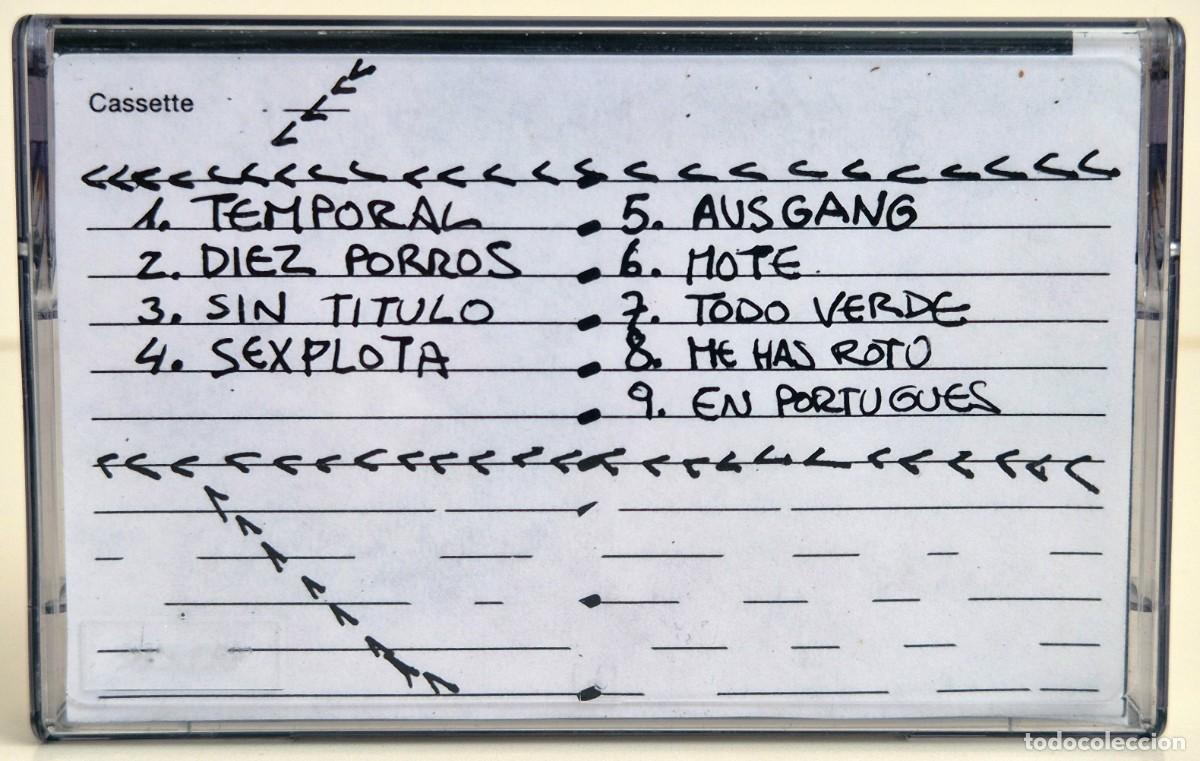 Cassette
1. TEMPORAL
2. DIEZ PORROS
3. SIN TITULO
4. SEXPLOTA
5. AUSGANG
6. MOTE
7. TODO VERDE
8. ME HAS ROTO
9. EN PORTUGUES
todocoleccion